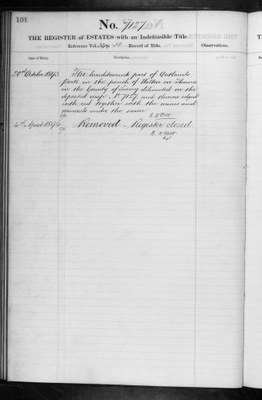 101
No. 7127
THE REGISTER of ESTATES with an Indefeasible Title
Reference Vol. Folio Record of Title.
Observations.
Date of Entry.
Description.
20th October 1893
The hereditaments part of Oatlands
Park in the parish of Walton on Thames
in the County of Surrey delineated on the
deposited map No. 7127 and thereon edged
with red together with the mines and
minerals under the same
Removed Register closed